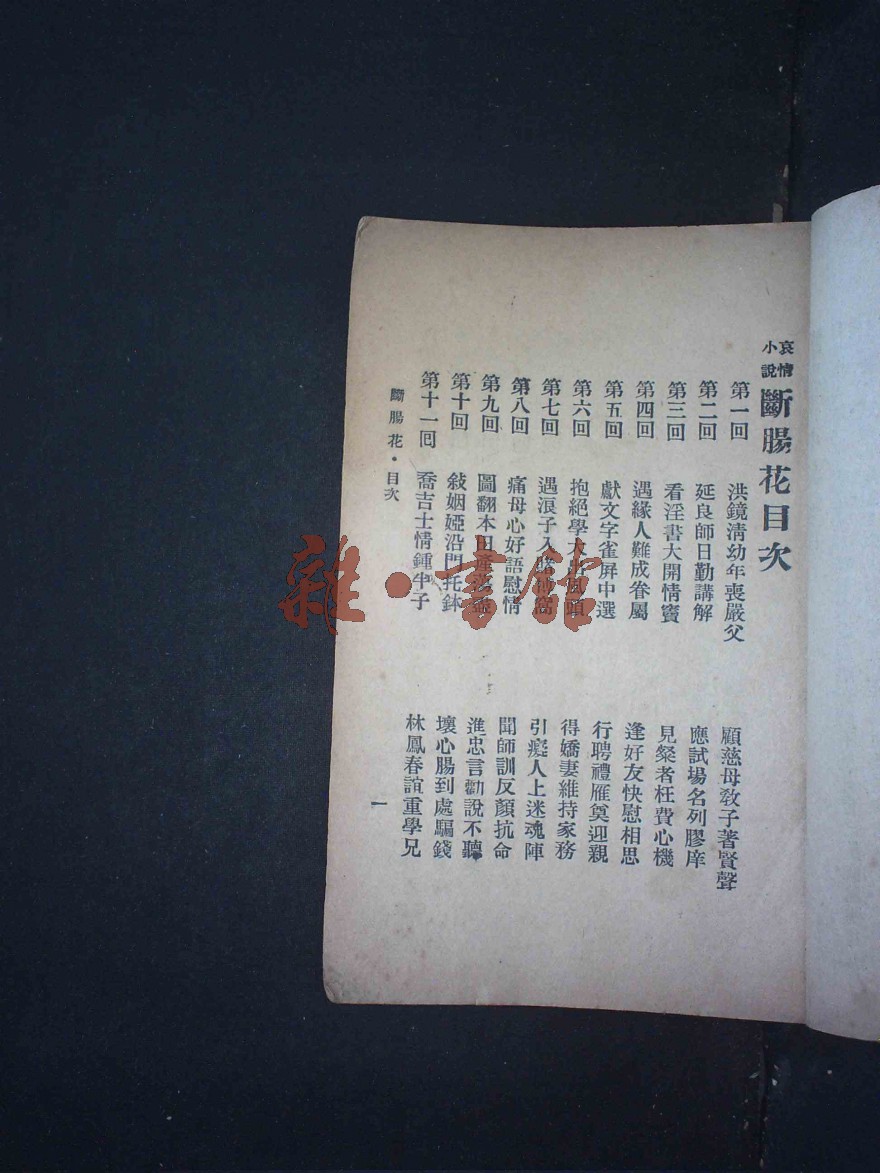 哀情小說
斷腸花目次
第一回 洪鏡清幼年喪嚴父 顧慈母教子著賢聲
第二回 延良師日勤講解 應試場名列膠庠
第三回 看淫書大開情竇 見粲者枉費心機
第四回 遇緣人難成眷屬 逢好友快慰相思
第五回 獻文字雀屏中選 行聘禮雁奠迎親
第六回 抱絕學大出風頭 得嬌妻維持家務
第七回 遇浪子入賭 引癡人上迷魂陣
第八回 痛母心好語慰情 聞師訓反顏抗命
第九回 圖翻本田產 進忠言勸說不聽
第十回 敍姻婭沿門托鉢 壞心腸到處騙錢
第十一回 喬吉士情鍾半子 林鳳春誼重學兄
斷腸花・目次
一
雜・書館